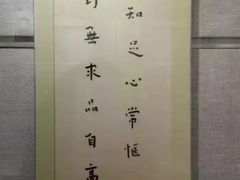 知足心常愜
無求品自高